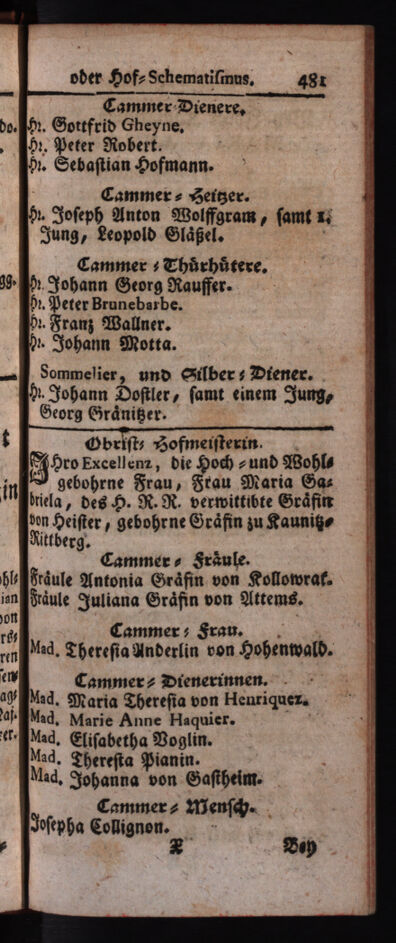 oder Hof-Schematismus. 481
Cammer-Dienere.
Hr. Gottfrid Gheyne.
Hr. Peter Robert.
Hr. Sebastian Hofmann.
Cammer-Heitzer.
Hr. Joseph Anton Wolffgram, samt 1.
Jung, Leopold Gläßel.
Cammer-Thürhütere.
Hr. Johann Georg Rauffer.
Hr. Peter Brunebarbe.
Hr. Frantz Wallner.
Hr. Johann Motta.
Sommelier, und Silber-Diener.
Hr. Johann Dostler, samt einem Jung,
Georg Gränitzer.
Obrist-Hofmeisterin.
IHro Excellenz, die Hoch- und Wohl-
gebohrne Frau, Frau Maria Ga-
briela, des H. R. R. verwittibte Gräfin
von Heister, gebohrne Gräfin zu Kaunitz-
Rittberg.
Cammer-Fräule.
Fräule Antonia Gräfin von Kollowrat.
Fräule Juliana Gräfin von Attems.
Cammer-Frau.
Mad. Theresia Anderlin von Hohenwald.
Cammer-Dienerinnen.
Mad. Maria Theresia von Henriquez.
Mad. Marie Anne Haquier.
Mad. Elisabetha Voglin.
Mad. Theresia Pianin.
Mad. Johanna von Gastheim.
Cammer-Mensch.
Josepha Collignon.
X Bey